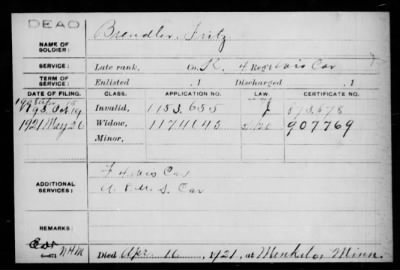 DEAD
NAME OF SOLDIER: Brendler, Fritz
SERVICE: Late rank, Co. K, 4 Reg't Wis Cav
TERM OF SERVICE: Enlisted , 1 Discharged , 1
DATE OF FILING. CLASS. APPLICATION NO. LAW. CERTIFICATE NO.
Oct 19 Invalid, 1153,655 J
1921 May 26 Widow, 1174643 907769
Minor,
ADDITIONAL SERVICES: F 4 Wis Cav
U.S. Cav
REMARKS:
Died Apr. 16, 1921, at Mankato Minn.